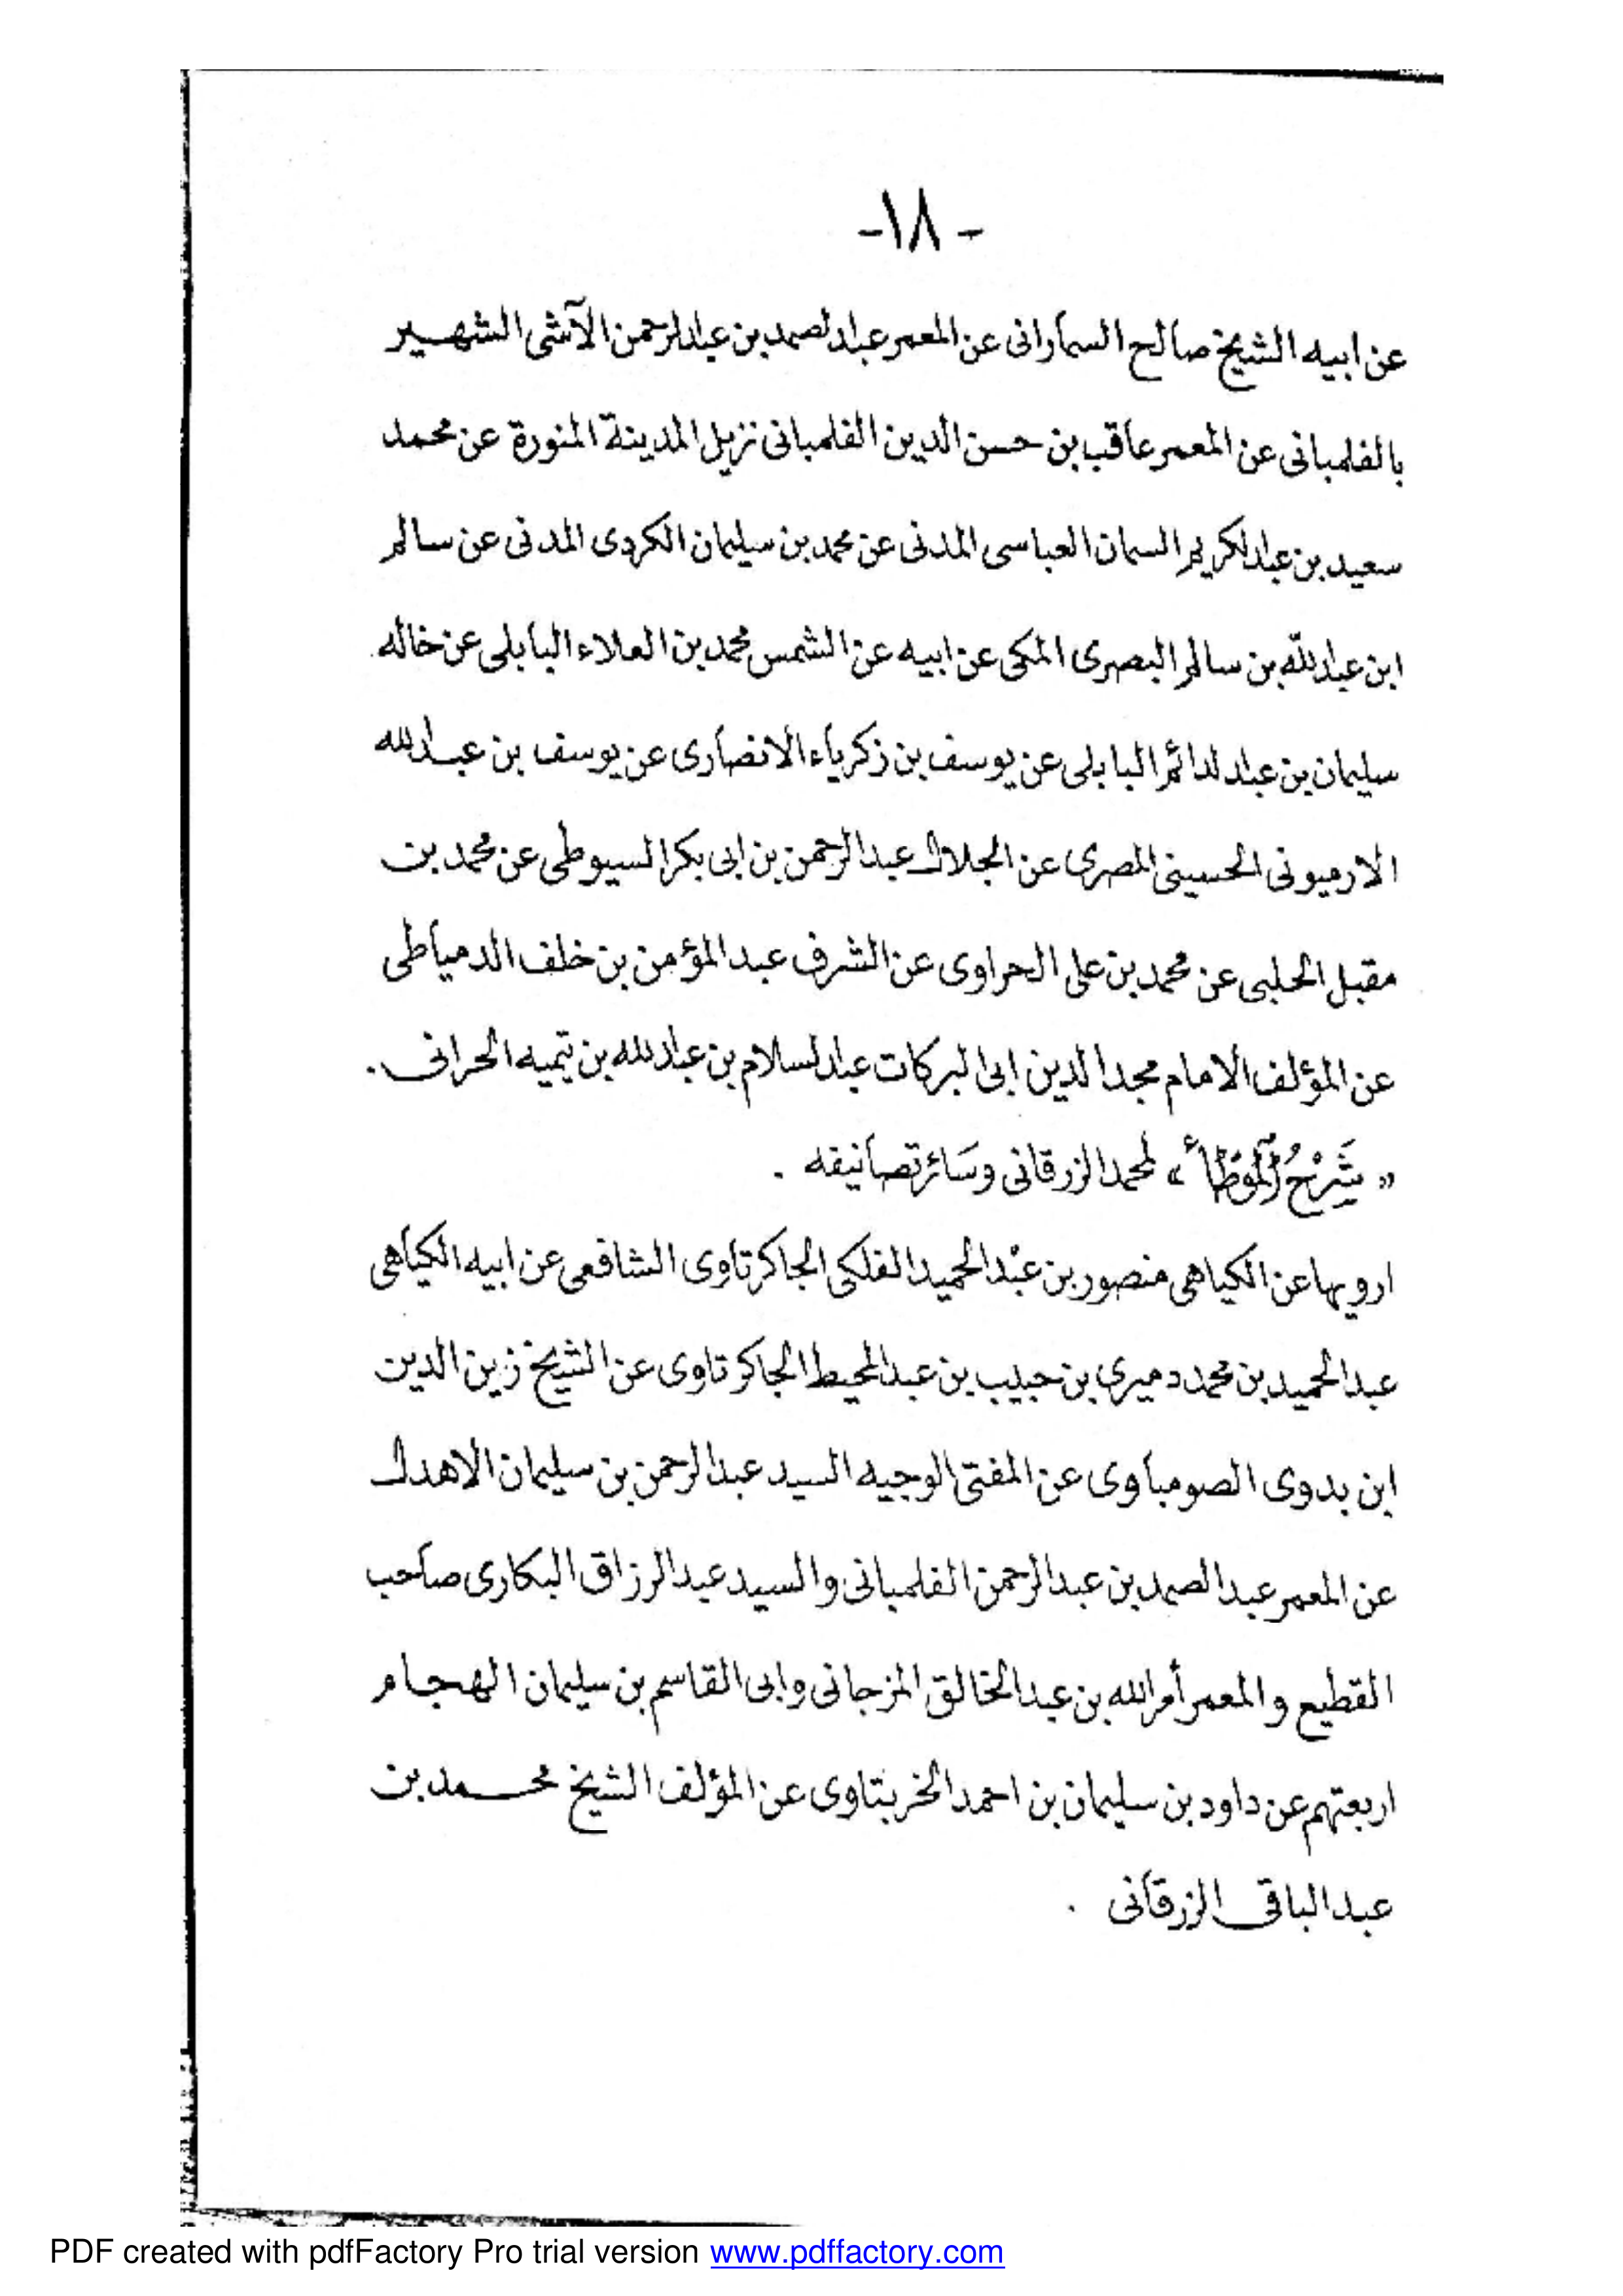 -١٨-
عن ابيه الشيخ صالح السمارانى عن المعمر عبد الصمد بن عبد الرحمن الآشى الشهير
بالفلمبانى عن المعمر عاقب بن حسن الدين الفلمبانى نزيل المدينة المنورة عن محمد
سعيد بن عبد الكريم السمان العباسى المدنى عن محمد بن سليمان الكردى المدنى عن سالم
ابن عبد الله بن سالم البصرى المكى عن ابيه عن الشمس محمد بن العلاء البابلى عن خاله
سليمان بن عبد الدائم البابلى عن يوسف بن زكرياء الانصارى عن يوسف بن عبد الله
الارميونى الحسينى المصرى عن الجلال عبد الرحمن بن ابى بكر السيوطى عن محمد بن
مقبل الحلبى عن محمد بن على الحراوى عن الشرف عبد المؤمن بن خلف الدمياطى
عن المؤلف الامام مجد الدين ابى البركات عبد السلام بن عبد الله بن تيميه الحرانى .
« شَرْحُ الْمُوَطَّأ » لمحمد الزرقانى وسَائر تصانيفه .
ارويها عن الكياهى منصور بن عبْد الحميد الفلكى الجاكرتاوى الشافعى عن ابيه الكياهى
عبد الحميد بن محمد دميري بن حبيب بن عبد المحيط الجاكرتاوى عن الشيخ زين الدين
ابن بدوى الصومباوى عن المفتى الوجيه السيد عبد الرحمن بن سليمان الاهدل
عن المعمر عبد الصمد بن عبد الرحمن الفلمبانى والسيد عبد الرزاق البكارى صاحب
القطيع والمعمر أمر الله بن عبد الخالق المزجانى وابى القاسم بن سليمان الهجام
اربعتهم عن داود بن سليمان بن احمد الخربتاوى عن المؤلف الشيخ محمد بن
عبد الباقى الزرقانى .
PDF created with pdfFactory Pro trial version www.pdffactory.com